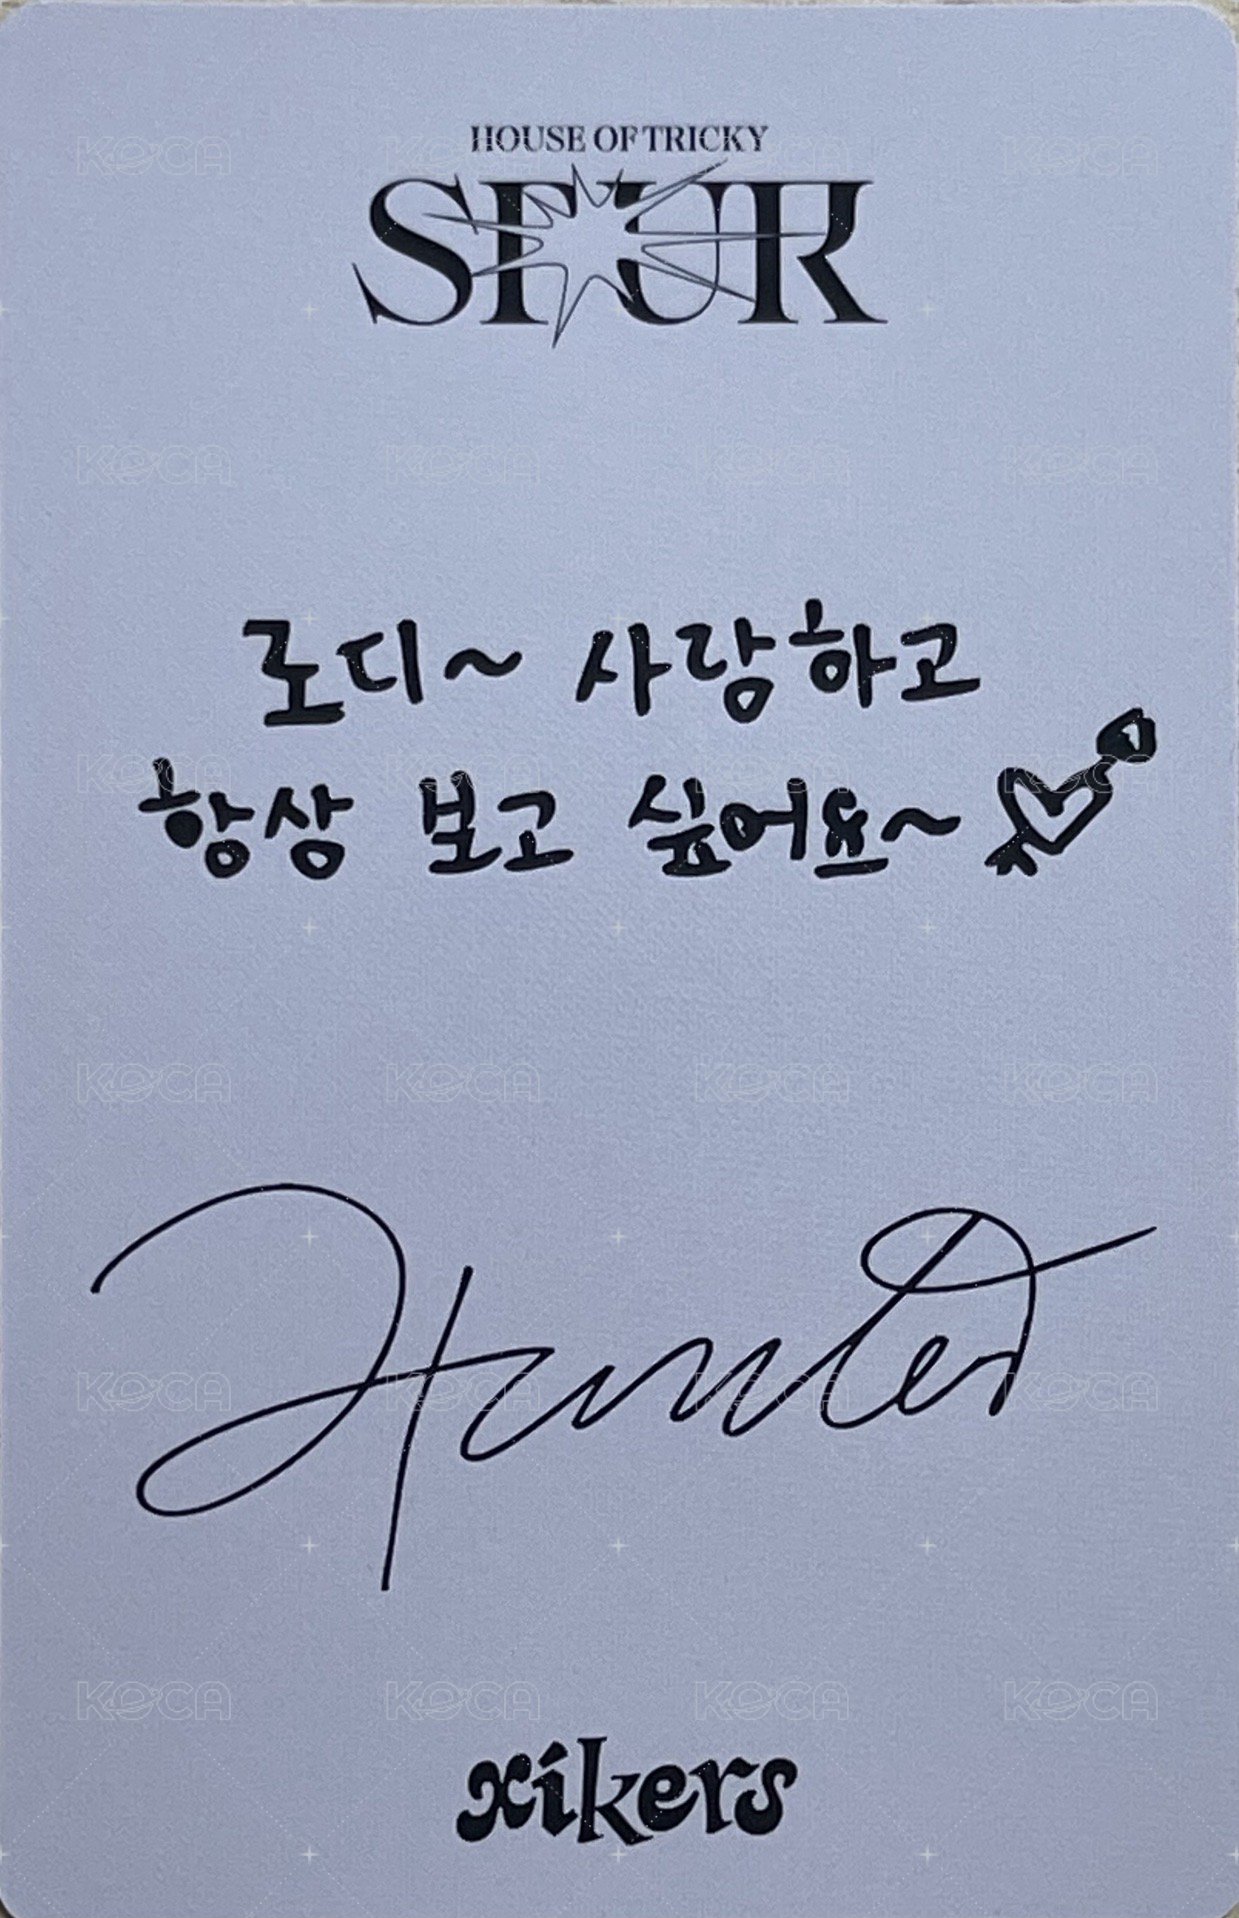 HOUSE OF TRICKY
SPUR
로디~ 사랑하고
항상 보고 싶어요~
Hunter
xikers
KOCA